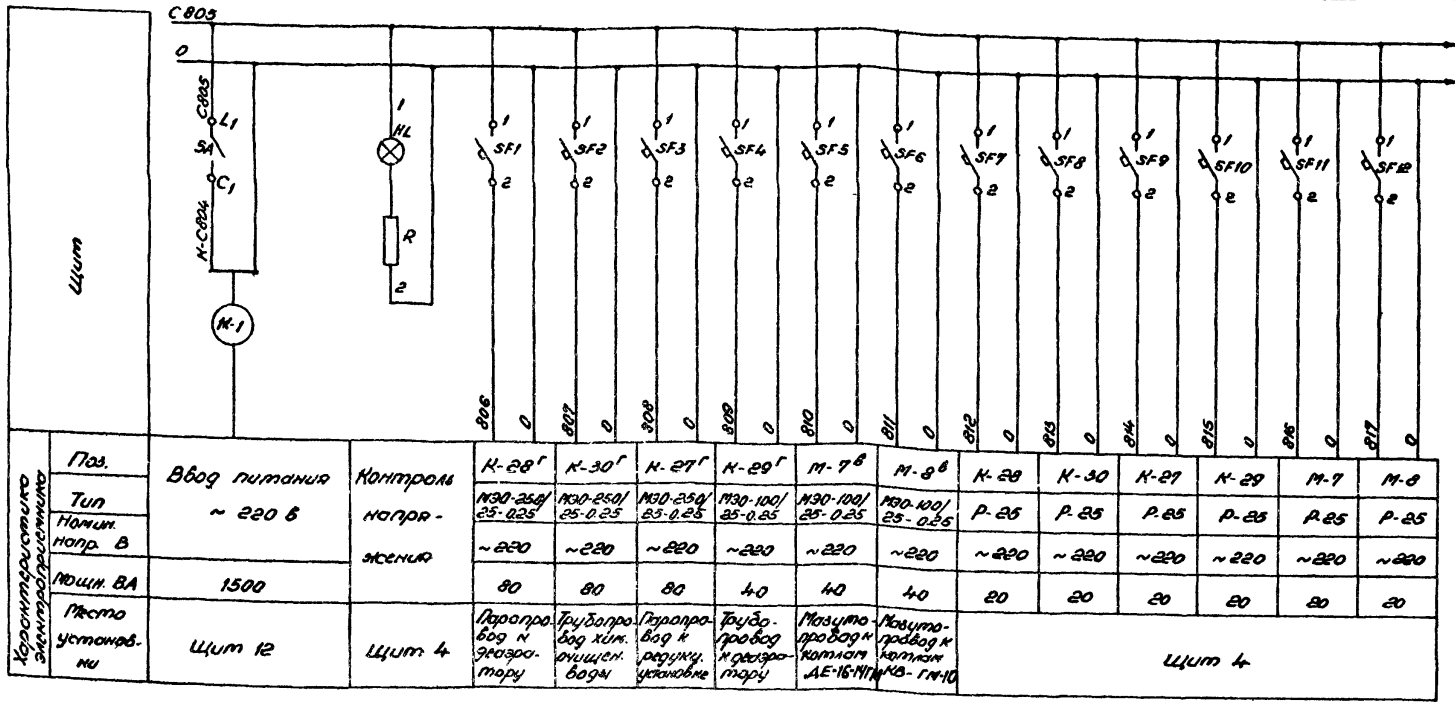 С 805
0
Щит
С805
L1
SA
C1
К-С804
К-1
1
HL
R
2
1
SF1
2
1
SF2
2
1
SF3
2
1
SF4
2
1
SF5
2
1
SF6
2
1
SF7
2
1
SF8
2
1
SF9
2
1
SF10
2
1
SF11
2
1
SF12
2
806
0
807
0
808
0
809
0
810
0
811
0
812
0
813
0
814
0
815
0
816
0
817
0
Характеристика
электроприемника
Поз.
Ввод питания
Контроль
К-28г
К-30г
К-27г
К-29г
М-7в
М-8в
К-28
К-30
К-27
К-29
М-7
М-8
Тип
~ 220 в
напря-
МЭО-250/
25-0.25
МЭО-250/
25-0.25
МЭО-250/
25-0.25
МЭО-100/
25-0.25
МЭО-100/
25-0.25
МЭО-100/
25-0.25
Р-25
Р-25
Р-25
Р-25
Р-25
Р-25
Номин.
напр. В
жения
~220
~220
~220
~220
~220
~220
~220
~220
~220
~220
~220
~220
Мощн. ВА
1500
80
80
80
40
40
40
20
20
20
20
20
20
Место
установ-
ки
Щит 12
Щит 4
Паропро-
вод к
деаэра-
тору
Трубопро-
вод хим.
очищен.
воды
Паропро-
вод к
редукц.
установке
Трубо-
провод
к деаэра-
тору
Мазуто-
провод к
котлам
ДЕ-16-14ГМ
Мазуто-
провод к
котлам
КВ-ГМ-10
Щит 4